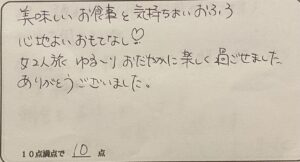 美味しいお食事と気持ちよいおふろ
心地よいおもてなし♡
女2人旅 ゆる〜り おだやかに楽しく過ごせました
ありがとうございました。
10点満点で 10 点